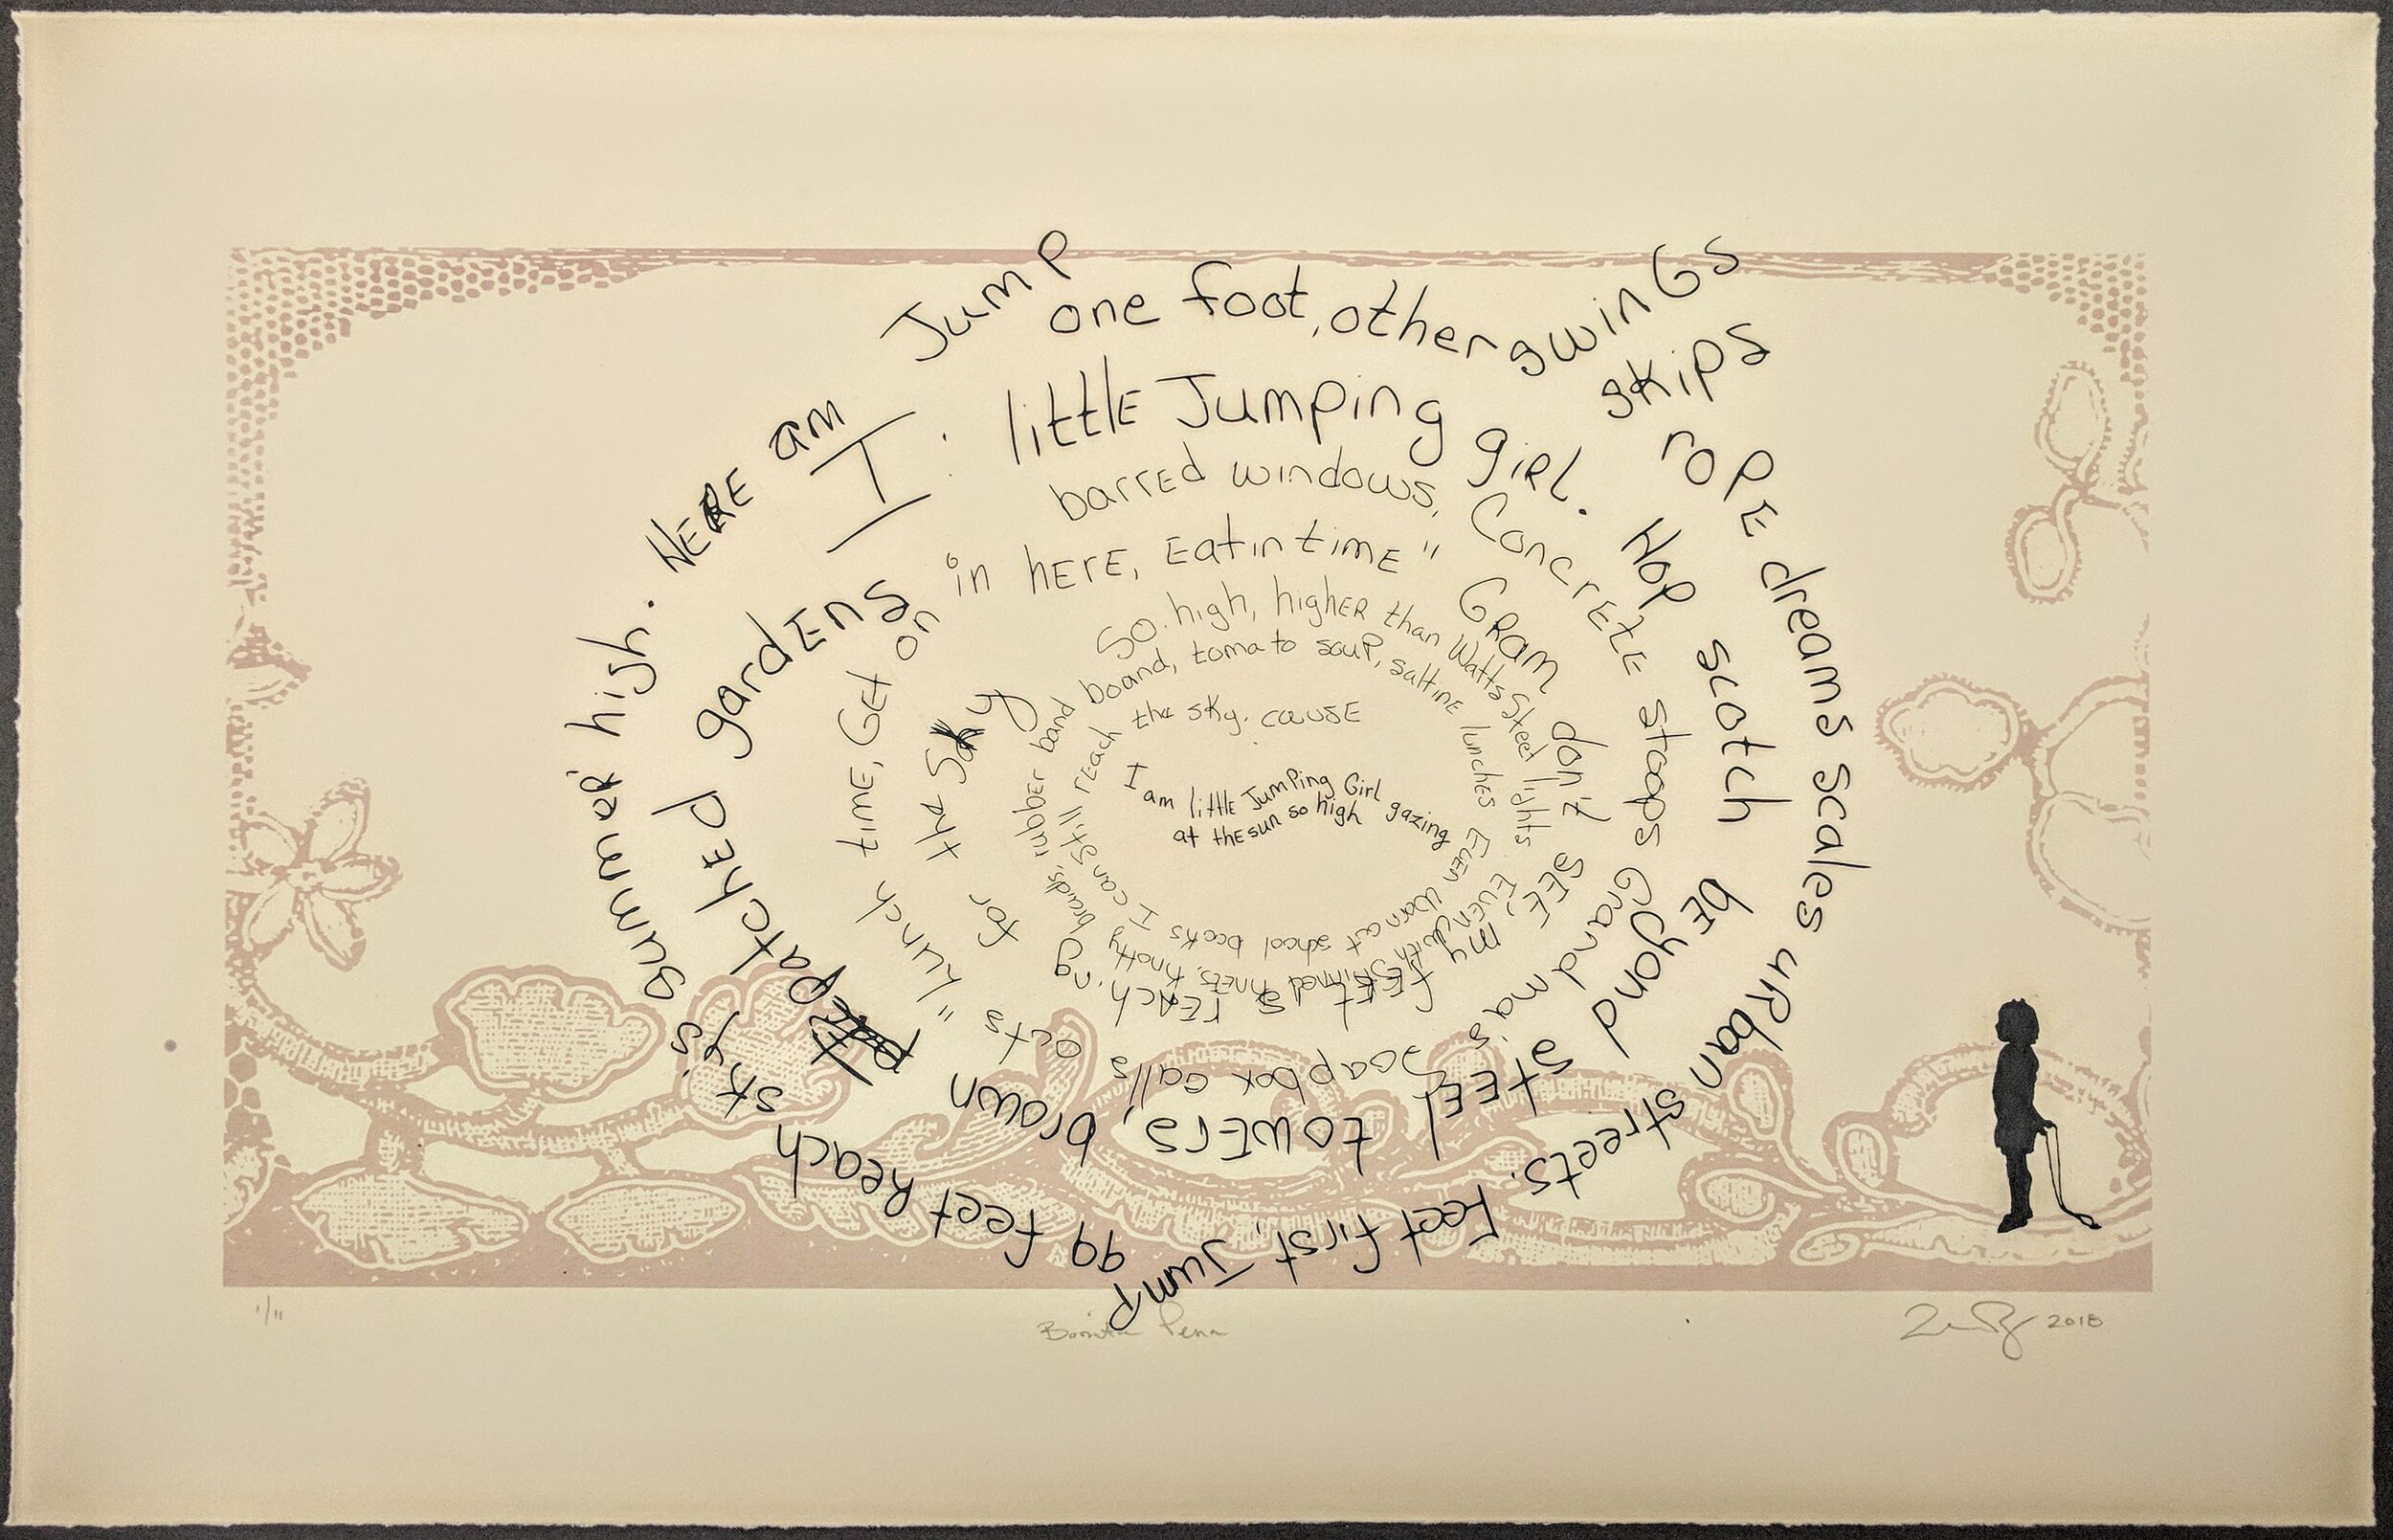 Jump
one foot, other swings
skips
rope dreams scales urban streets. Feet first, Jump
99 feet Reach sky's summer high. HERE am I: little Jumping girl. Hop scotch beyond steel towers, brown patched gardens
barred windows, Concrete stoops Grandma's soapbox calls acts "lunch time, Get on in here, Eatin time" Gram don't see my feet reaching for the sky
So high, higher than Watts Steel lights Even with skinned knees, knotty braids, rubber band board, tomato soup, saltine lunches Even worn out school books I can still reach the sky. cause
I am little Jumping Girl gazing
at the sun so high
1/11
2018